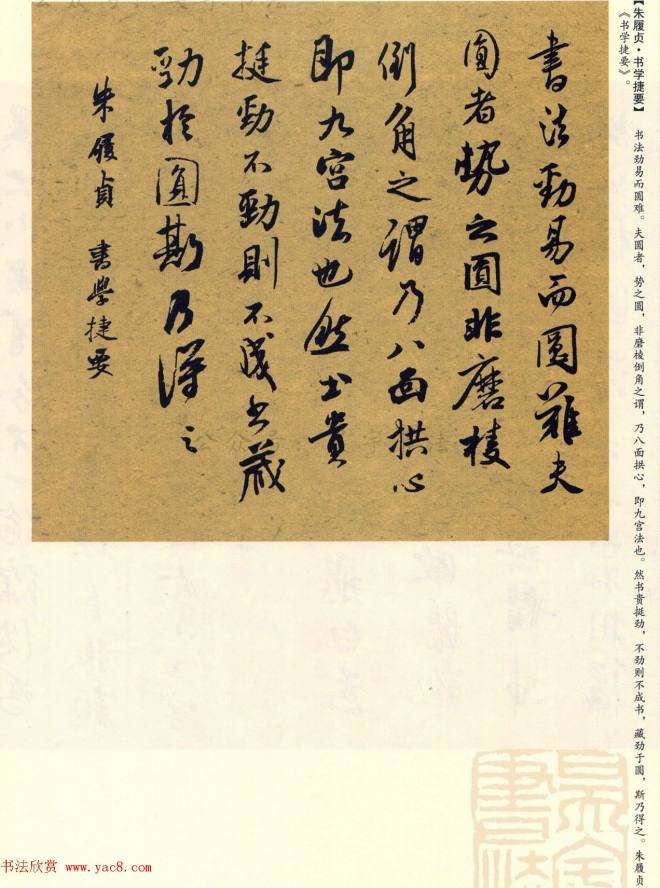 【朱履贞·书学捷要】 书法劲易而圆难。夫圆者，势之圆，非磨棱倒角之谓，乃八面拱心，即九宫法也。然书贵挺劲，不劲则不成书，藏劲于圆，斯乃得之。朱履贞
《书学捷要》。
書法勁易而圓難夫
圓者勢之圓非磨棱
倒角之謂乃八面拱心
即九宮法也然书貴
挺勁不勁則不成书藏
勁於圓斯乃得之
朱履貞 書學捷要
书法欣赏 www.yac8.com